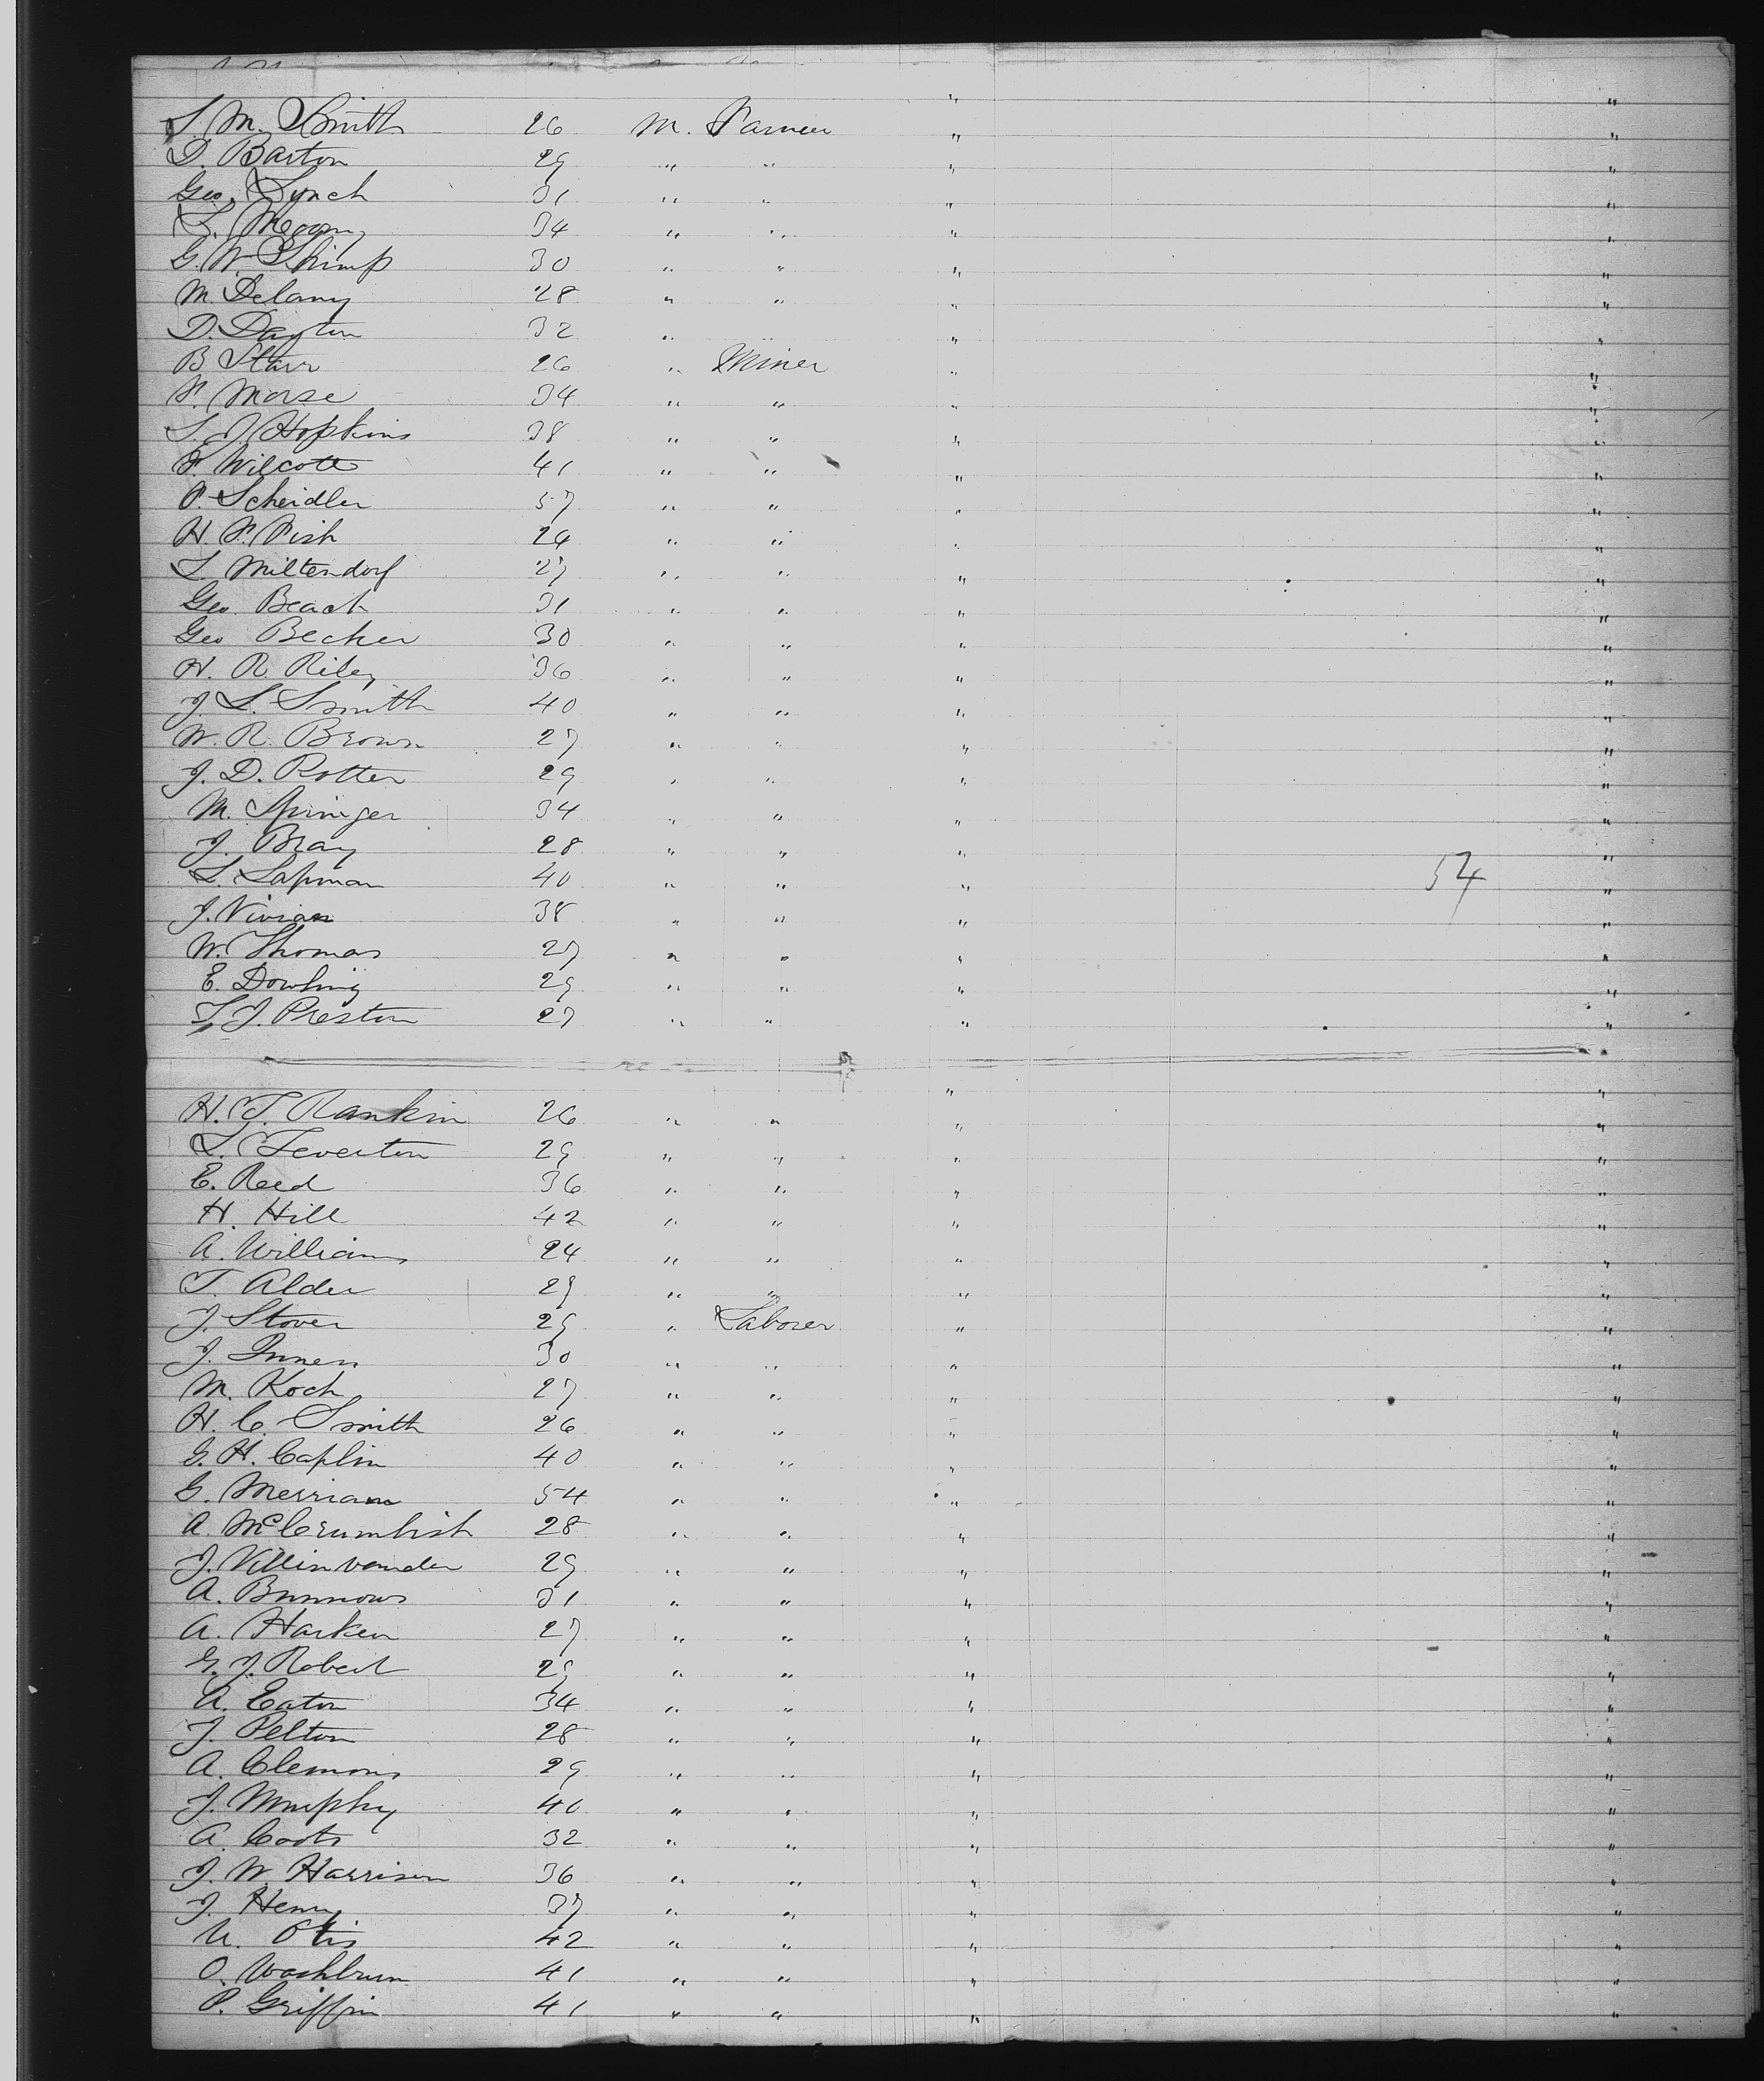 S. M. Smith 26 M. Farmer "
D. Barton 29 " " " "
Geo. Lynch 31 " " " "
L. 34 " " " "
G. W. Shimp 30 " " " "
M. Delany 28 " " " "
D. Dayton 32 " " " "
B Starr 26 " Miner " "
F. Morse 34 " " " "
S. J. Hopkins 38 " " " "
F. Wilcott 41 " " " "
P. Scheidler 57 " " " "
H. F. Fish 24 " " " "
L. Miltendorf 27 " " " "
Geo. Beach 31 " " " "
Geo Becker 30 " " " "
H. R. Riley 36 " " " "
J. L. Smith 40 " " " "
W. R. Brown 27 " " " "
J. D. Potter 29 " " " "
M. Springer 34 " " " "
J. Bray 28 " " " "
L. Lapman 40 " " " " 54
J. Vivian 38 " " " "
W. Thomas 27 " " " "
E. Dowling 29 " " " "
T. J. Preston 27 " " " "
H. T. Rankin 26 " " " "
L. Leverton 29 " " " "
E. Reed 36 " " " "
H. Hill 42 " " " "
A. Williams 24 " " " "
T. Alder 29 " " " "
J. Stover 29 " Laborer " "
J. Innen 30 " " " "
M. Koch 27 " " " "
H. C. Smith 26 " " " "
G. H. Caplin 40 " " " "
G. Merriam 54 " " " "
A. McCrumlish 28 " " " "
J. 29 " " " "
A. 31 " " " "
A. Harken 27 " " " "
G. J. Robert 29 " " " "
A. Eaton 34 " " " "
J. Pelton 28 " " " "
A. Clemons 29 " " " "
J. Murphy 40 " " " "
A. Coots 32 " " " "
J. W. Harrison 36 " " " "
J. Henry 37 " " " "
U. Otis 42 " " " "
O. Washburn 41 " " " "
P. Griffin 41 " " " "